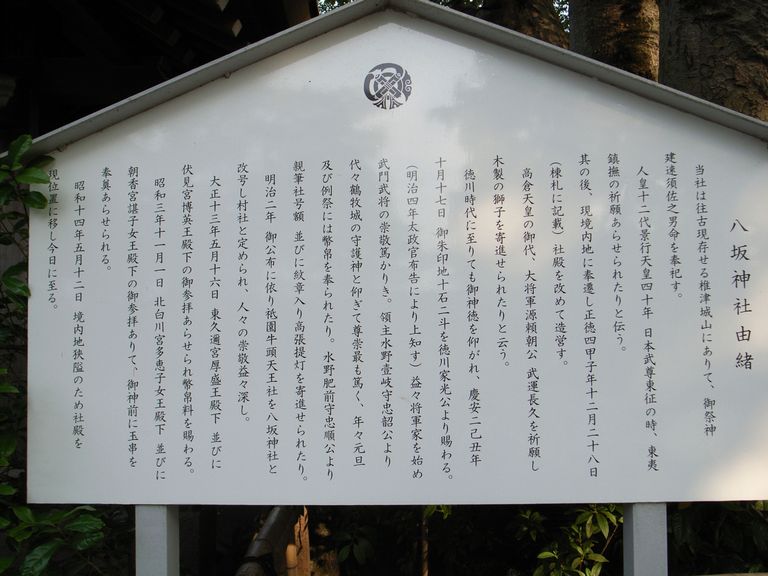 八坂神社由緒
当社は往古現存せる椎津城山にありて、御祭神
建速須佐之男命を奉祀す。
人皇十二代景行天皇四十年 日本武尊東征の時、東夷
鎮撫の祈願あらせられたりと伝う。
其の後、現境内地に奉遷し正徳四甲子年十二月二十八日
(棟札に記載)社殿を改めて造営す。
高倉天皇の御代、大将軍源頼朝公 武運長久を祈願し
木製の獅子を寄進せられたりと云う。
徳川時代に至りても御神徳を仰がれ、慶安二己丑年
十月十七日 御朱印地十石二斗を徳川家光公より賜わる。
(明治四年太政官布告により上知す)益々将軍家を始め
武門武将の崇敬篤かりき。領主水野壹岐守忠韶公より
代々鶴牧城の守護神と仰ぎて尊崇最も篤く、年々元旦
及び例祭には幣帛を奉られたり。水野肥前守忠順公より
親筆社号額 並びに紋章入り高張提灯を寄進せられたり。
明治二年 御公布に依り祇園牛頭天王社を八坂神社と
改号し村社と定められ、人々の崇敬益々深し。
大正十三年五月十六日 東久邇宮厚盛王殿下 並びに
伏見宮博英王殿下の御参拝あらせられ幣帛料を賜わる。
昭和三年十一月一日 北白川宮多恵子女王殿下 並びに
朝香宮湛子女王殿下の御参拝ありて、御神前に玉串を
奉奠あらせられる。
昭和十四年五月十二日 境内地狭隘のため社殿を
現位置に移し今日に至る。